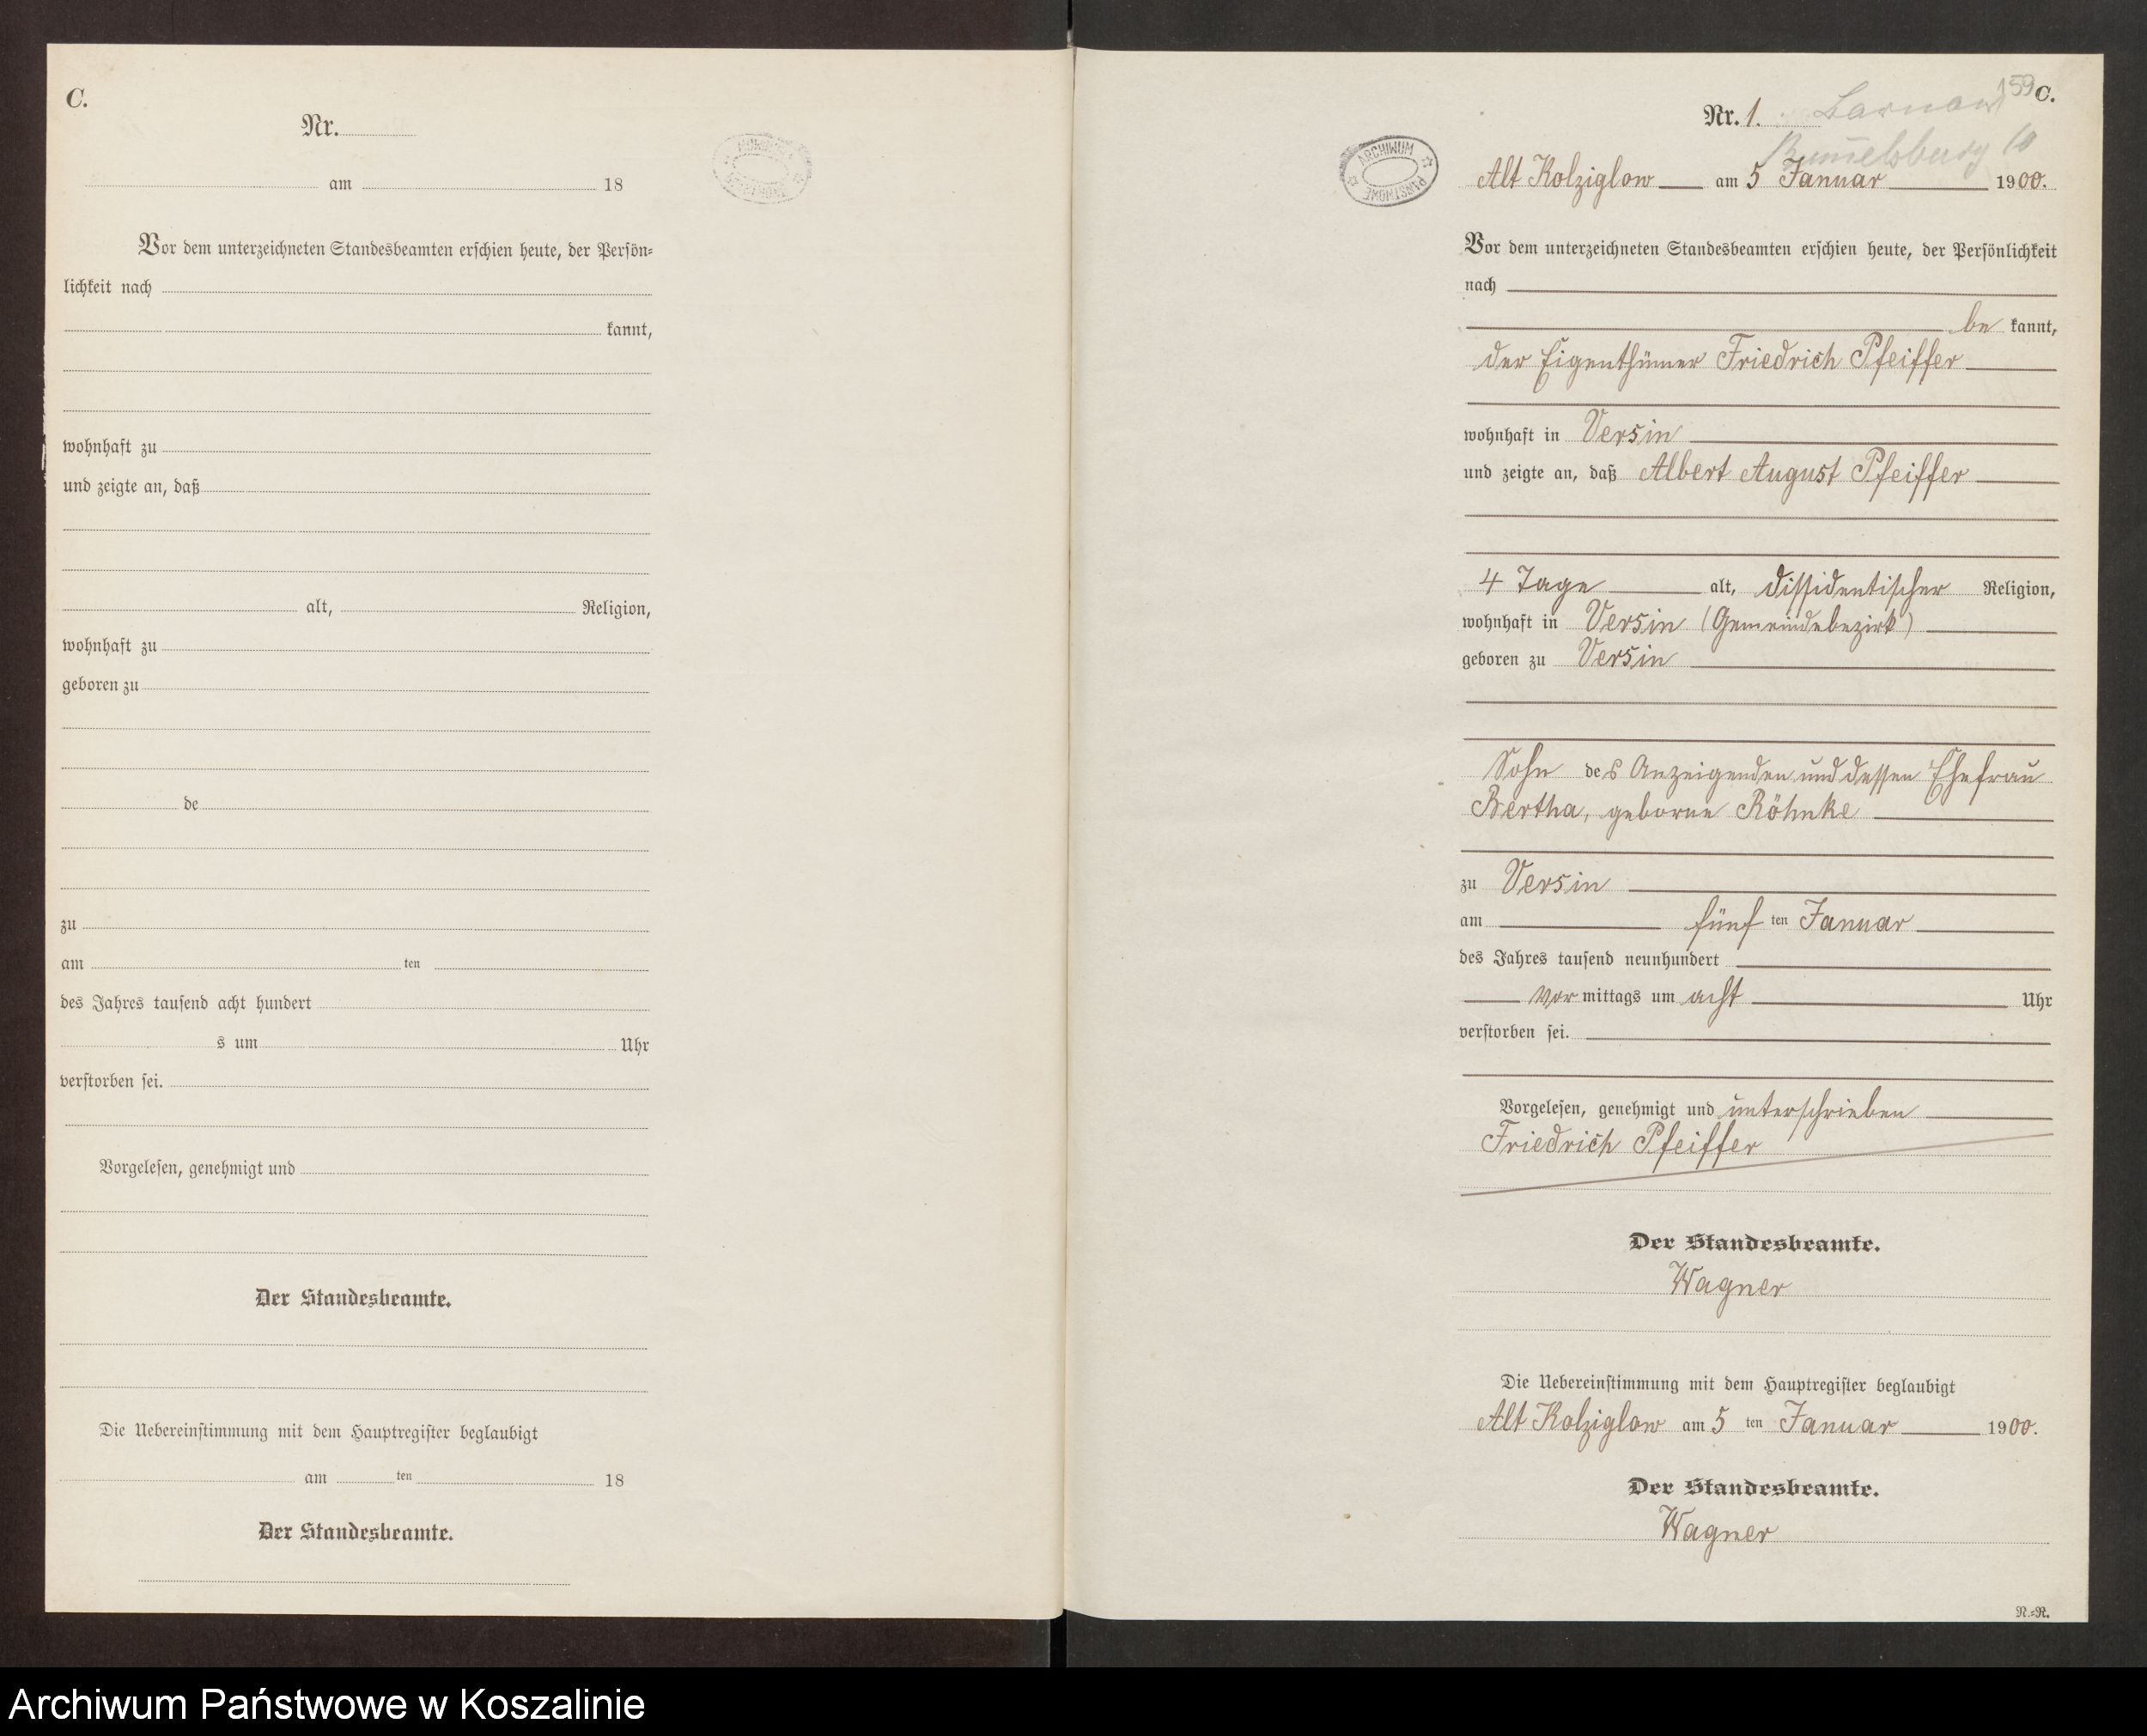 C.
Nr.
am 18
Vor dem unterzeichneten Standesbeamten erschien heute, der Persön-
lichkeit nach
kannt,
wohnhaft zu
und zeigte an, daß
alt, Religion,
wohnhaft zu
geboren zu
de
zu
am ten
des Jahres tausend acht hundert
s um Uhr
verstorben sei.
Vorgelesen, genehmigt und
Der Standesbeamte.
Die Uebereinstimmung mit dem Hauptregister beglaubigt
am ten 18
Der Standesbeamte.
159 C.
Nr. 1. Barnow
Rummelsburg 10
ARCHIWUM PAŃSTWOWE
Alt Kolziglow am 5 Januar 1900.
Vor dem unterzeichneten Standesbeamten erschien heute, der Persönlichkeit
nach
be kannt,
der Eigenthümer Friedrich Pfeiffer
wohnhaft in Versin
und zeigte an, daß Albert August Pfeiffer
4 Tage alt, dissidentischer Religion,
wohnhaft in Versin (Gemeindebezirk)
geboren zu Versin
Sohn des Anzeigenden und dessen Ehefrau
Bertha, geborne Röhnke
zu Versin
am fünf ten Januar
des Jahres tausend neunhundert
vor mittags um acht Uhr
verstorben sei.
Vorgelesen, genehmigt und unterschrieben
Friedrich Pfeiffer
Der Standesbeamte.
Wagner
Die Uebereinstimmung mit dem Hauptregister beglaubigt
Alt Kolziglow am 5 ten Januar 1900.
Der Standesbeamte.
Wagner
N.=R.
Archiwum Państwowe w Koszalinie